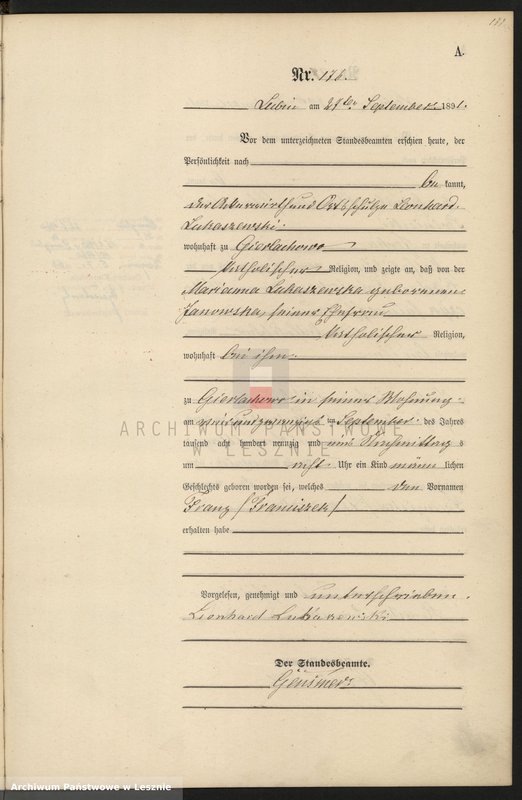 A.
Nr. 178.
Lubin am 24ten September 1891.
Vor dem unterzeichneten Standesbeamten erschien heute, der
Persönlichkeit nach
be kannt,
der Ackerwirth und Ortsschulze Leonhard
Lukaszewski
wohnhaft zu Gierlachowo
katholischer Religion, und zeigte an, daß von der
Marianna Lukaszewska geborenen
Janowska, seiner Ehefrau
katholischer Religion,
wohnhaft bei ihm
zu Gierlachowo in seiner Wohnung
am ten September des Jahres
tausend acht hundert neunzig und eins Nachmittag s
um acht Uhr ein Kind männ lichen
Geschlechts geboren worden sei, welches den Vornamen
Franz /Franciszek/
erhalten habe
Vorgelesen, genehmigt und unterschrieben.
Leonhard Lukaszewski
Der Standesbeamte.
ARCHIWUM PAŃSTWOWE
W LESZNIE
Archiwum Państwowe w Lesznie